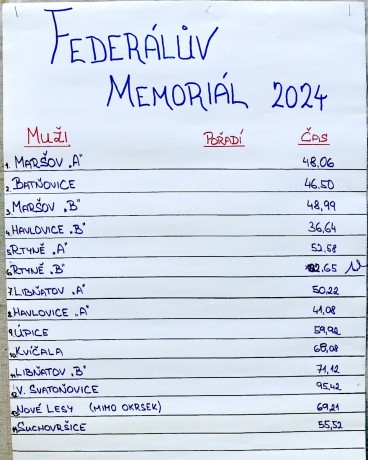 FEDERÁLŮV
MEMORIÁL 2024
MUŽI POŘADÍ ČAS
1. MARŠOV „A" 48,06
2. BATŇOVICE 46,50
3. MARŠOV „B" 48,99
4. HAVLOVICE „B" 36,64
5. RTYNĚ „A" 52,58
6. RTYNĚ „B" 82,65 N
7. LIBŇATOV „A" 50,22
8. HAVLOVICE „A" 41,08
9. ÚPICE 59,92
10. KVÍČALA 68,08
11. LIBŇATOV „B" 71,12
12. V. SVATOŇOVICE 95,42
13. NOVÉ LESY (MIMO OKRSEK) 69,21
14. SUCHOVRŠICE 55,52